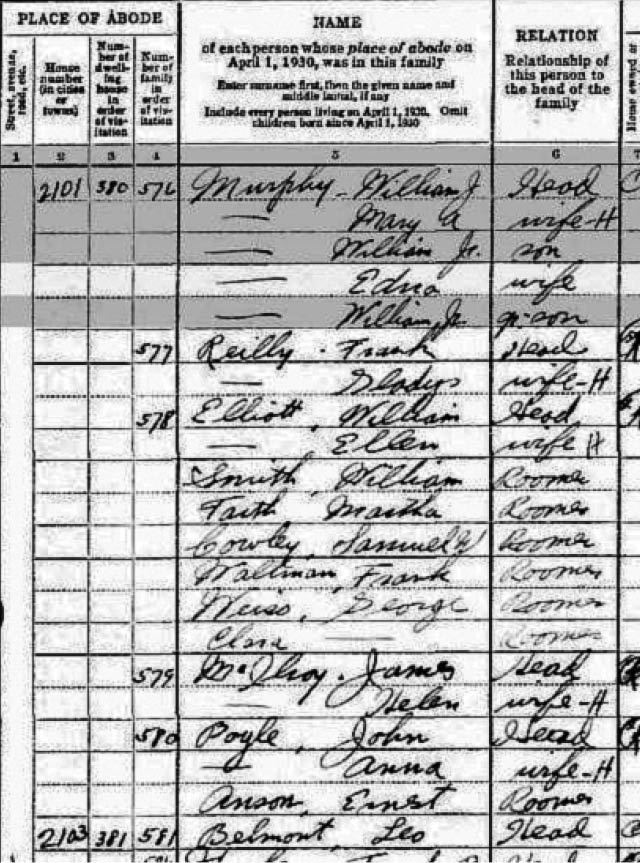 PLACE OF ABODE
Street, avenue, road, etc.
House number (in cities or towns)
Num-ber of dwell-ing house in order of vis-itation
Num-ber of family in order of vis-itation
NAME
of each person whose place of abode on
April 1, 1930, was in this family
Enter surname first, then the given name and
middle initial, if any
Include every person living on April 1, 1930. Omit
children born since April 1, 1930
RELATION
Relationship of
this person to
the head of the
family
1 2 3 4 5 6 7
2101 380 576 Murphy - William J Head
— Mary A wife-H
— William Jr. son
— Edna wife
— William Jr. gr-son
577 Reilly - Frank Head
— Gladys wife-H
578 Elliott, William Head
— Ellen wife H
Smith, William Roomer
Faith Martha Roomer
Cowley, Samuel Roomer
Wallman, Frank Roomer
Weiss, George Roomer
Clara — Roomer
579 McIlroy, James Head
— Helen wife-H
580 Poyle, John Head
— Anna wife-H
Anson, Ernest Roomer
2103 381 581 Belmont, Leo Head